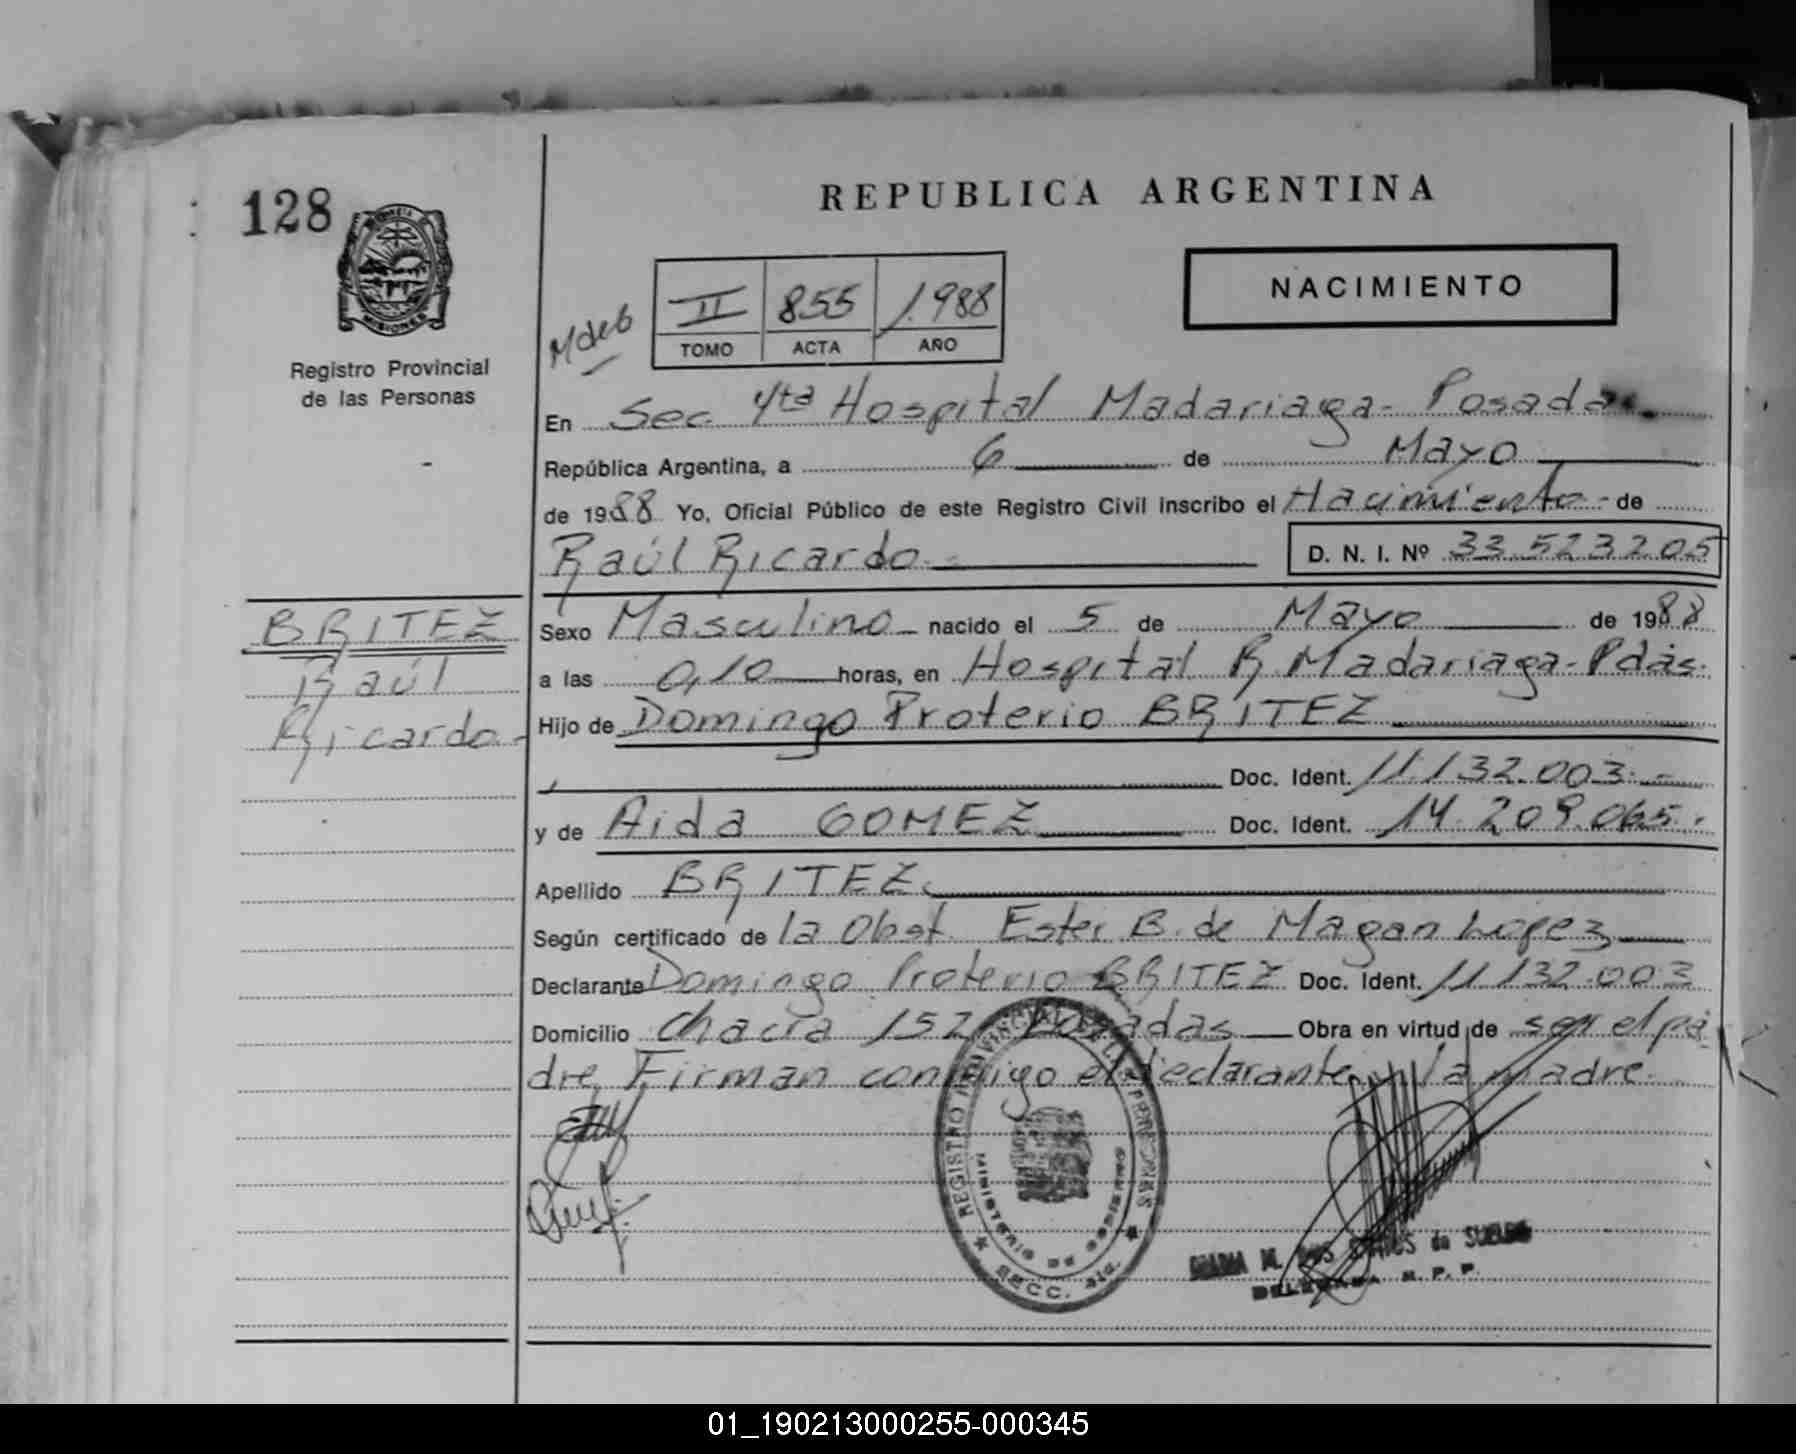 128
REPUBLICA ARGENTINA
NACIMIENTO
MISIONES
Registro Provincial
de las Personas
Mdeb
II 855 1.988
TOMO ACTA AÑO
En Sec. 4ta Hospital Madariaga - Posadas
República Argentina, a 6 de Mayo
de 1988 Yo, Oficial Público de este Registro Civil inscribo el Nacimiento - de
Raúl Ricardo.- D. N. I. Nº 33 523 205
BRITEZ
Raúl
Ricardo.-
Sexo Masculino nacido el 5 de Mayo de 1988
a las 0,10 horas, en Hospital R. Madariaga - Pdas.
Hijo de Domingo Proterio BRITEZ
Doc. Ident. 11.132.003.-
y de Aida GOMEZ Doc. Ident. 14.209.065.
Apellido BRITEZ.
Según certificado de la Obst. Ester B. de Magan Lopez
Declarante Domingo Proterio BRITEZ Doc. Ident. 11.132.003
Domicilio Chacra 152 Posadas Obra en virtud de ser el pa
dre, Firman conmigo el declarante y la madre.
REGISTRO PROVINCIAL DE LAS PERSONAS
MINISTERIO DE GOBIERNO
SECC. 4ta.
MARIA M. DOS SANTOS de SUELDO
DELEGADA R. P. P.
01_190213000255-000345